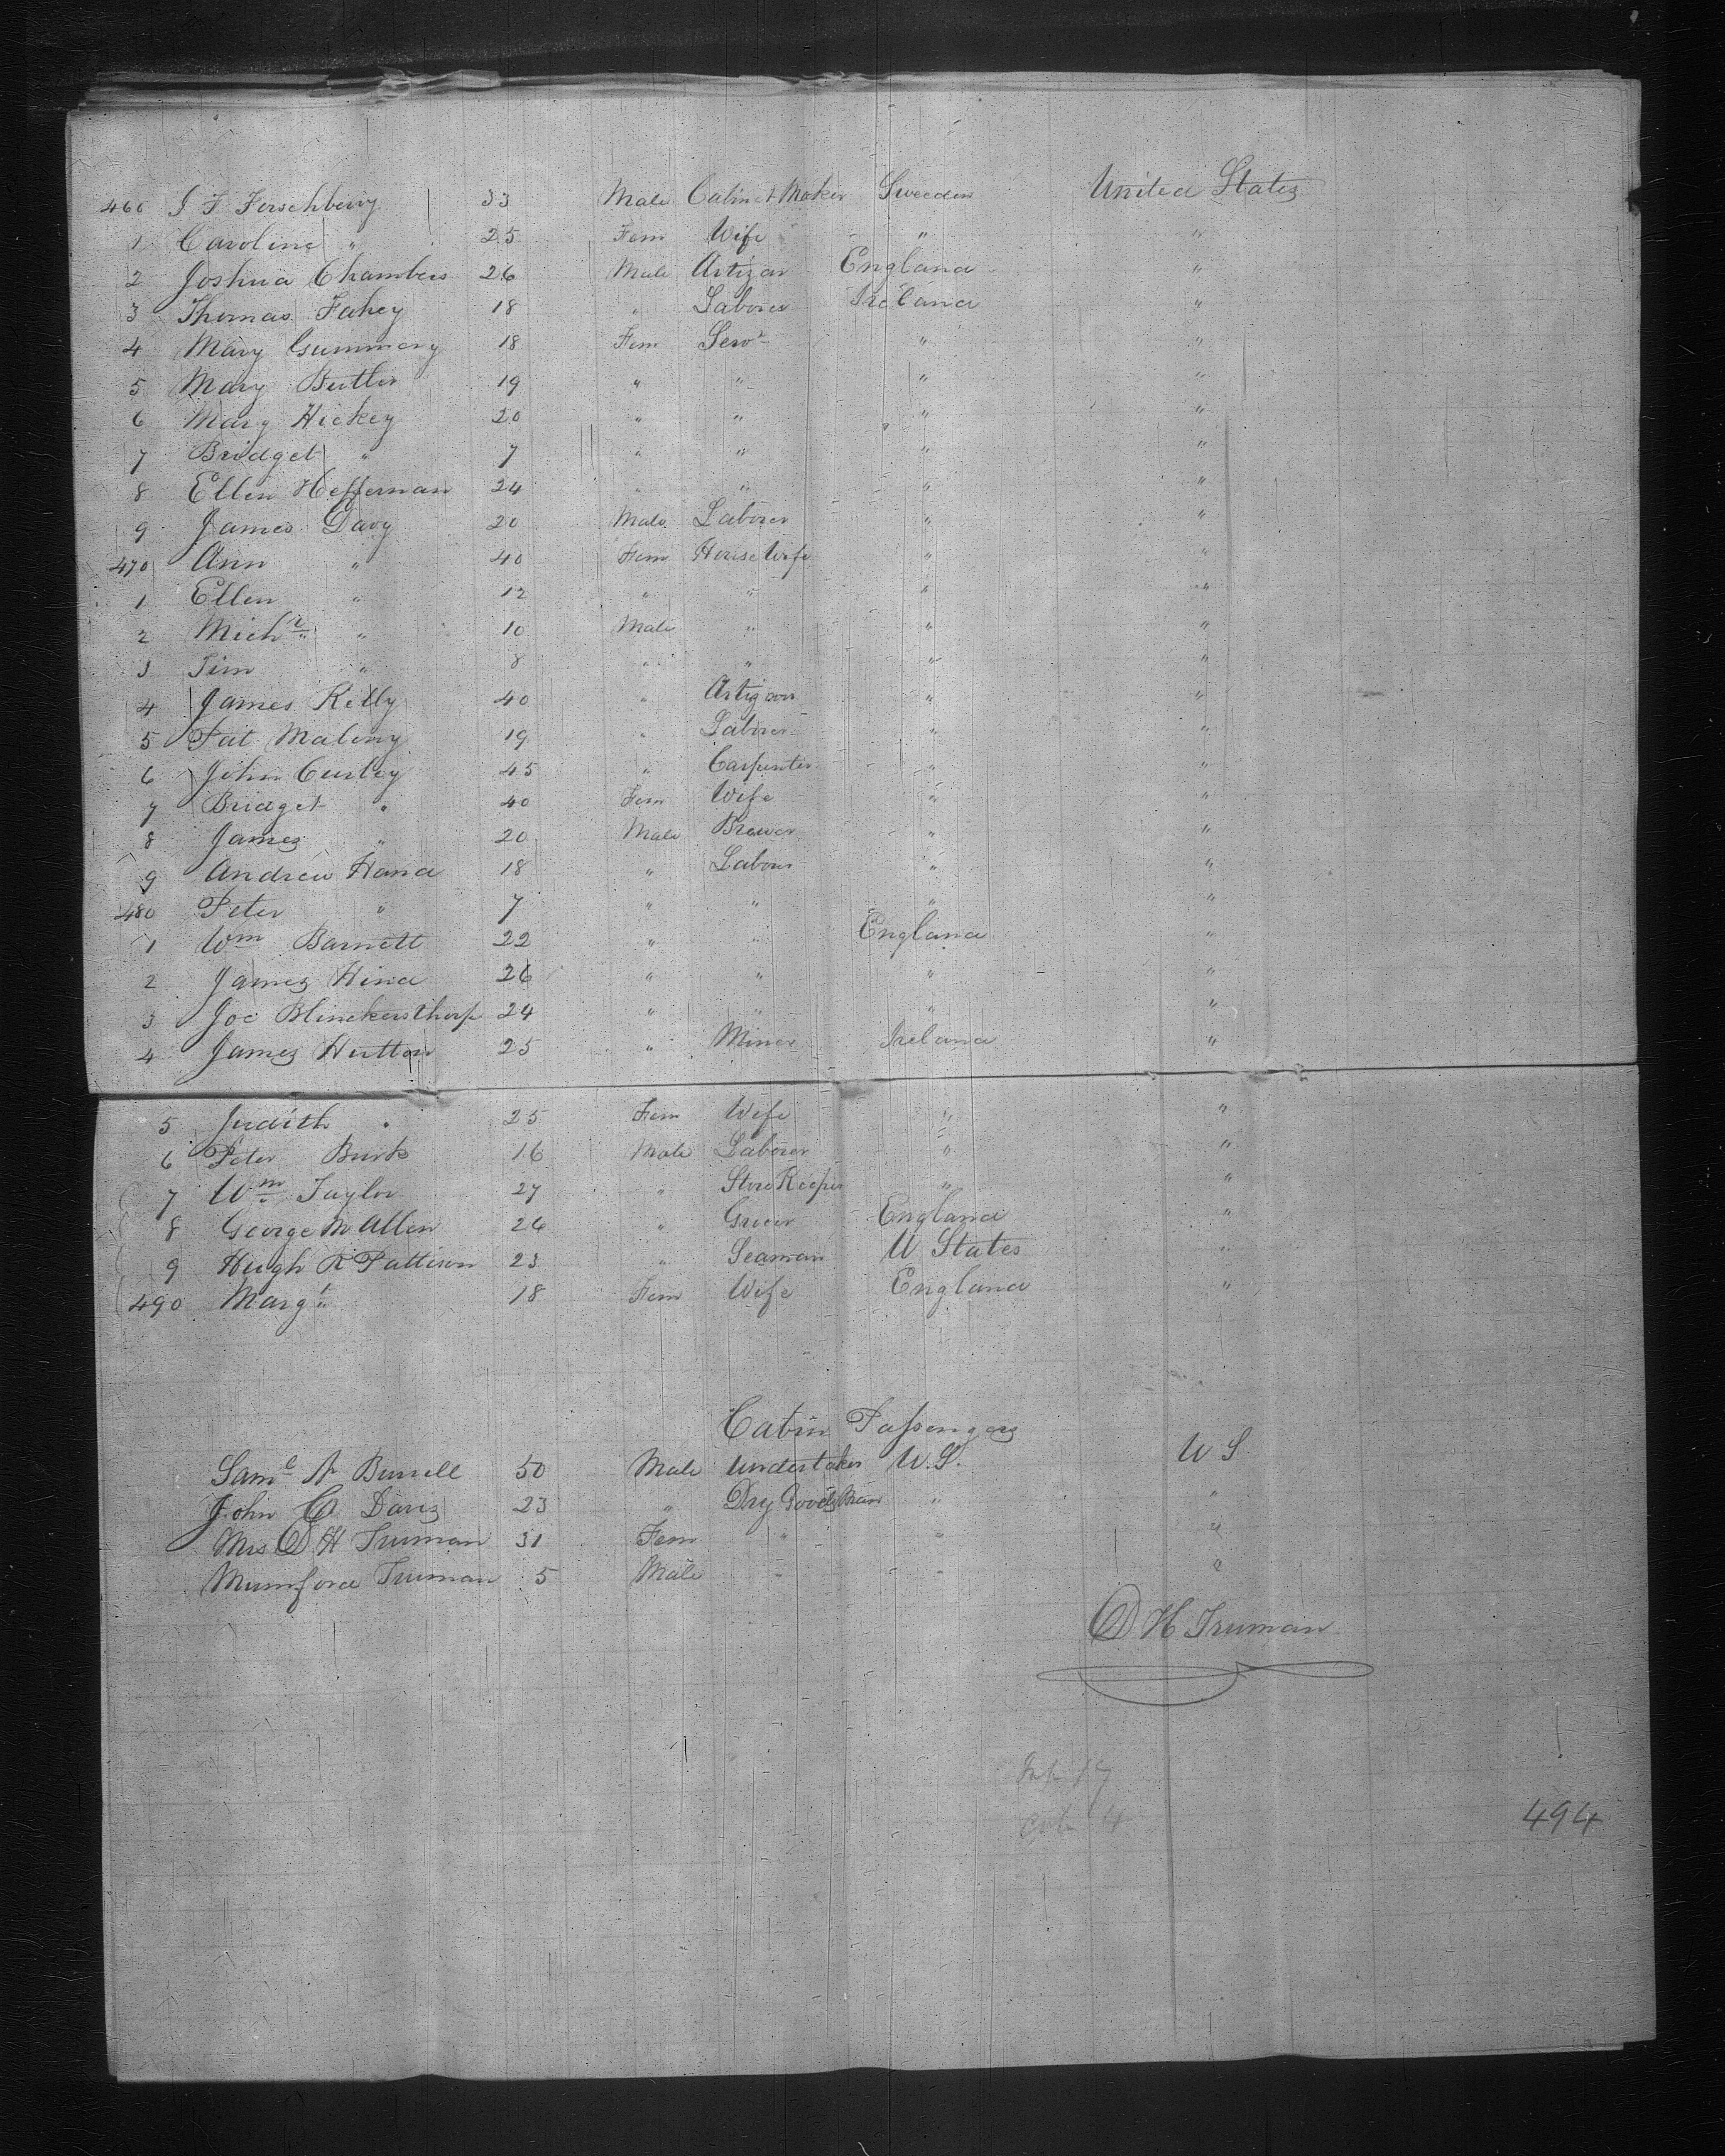 460 J F Forschberg 33 Male Cabinet Maker Sweeden United States
1 Caroline " 25 Fem Wife " "
2 Joshua Chambers 26 Male Artizan England "
3 Thomas Fahey 18 " Laborer Ireland "
4 Mary Gummery 18 Fem Servt " "
5 Mary Butler 19 " " " "
6 Mary Hickey 20 " " " "
7 Bridget " 7 " " " "
8 Ellen Heffernan 24 " " " "
9 James Davy 20 Male Laborer " "
470 Ann " 40 Fem House Wife " "
1 Ellen " 12 " " " "
2 Michl " 10 Male " " "
3 Tim " 8 " " " "
4 James Kelly 40 " Artizan " "
5 Pat Malony 19 " Laborer " "
6 John Curley 45 " Carpenter " "
7 Bridget " 40 Fem Wife " "
8 James " 20 Male Brewer " "
9 Andrew Hand 18 " Labour " "
480 Peter " 7 " " " "
1 Wm Barnett 22 " " England "
2 James Hind 26 " " " "
3 Joe Blinckersthorp 24 " " " "
4 James Hutton 25 " Miner Ireland "
5 Judith " 25 Fem Wife " "
6 Peter Burk 16 Male Laborer " "
7 Wm Taylor 27 " Store Keeper " "
8 George M Allen 26 " Grocer England "
9 Hugh R Pattison 23 " Seaman U States "
490 Margt " 18 Fem Wife England "
Cabin Passengers
Saml A Burrell 50 Male Undertaker U.S. U S
John C Davis 23 " Dry Goods Man " "
Mrs D H Truman 31 Fem " " "
Mumford Truman 5 Male " " "
D H Truman
17
4
494